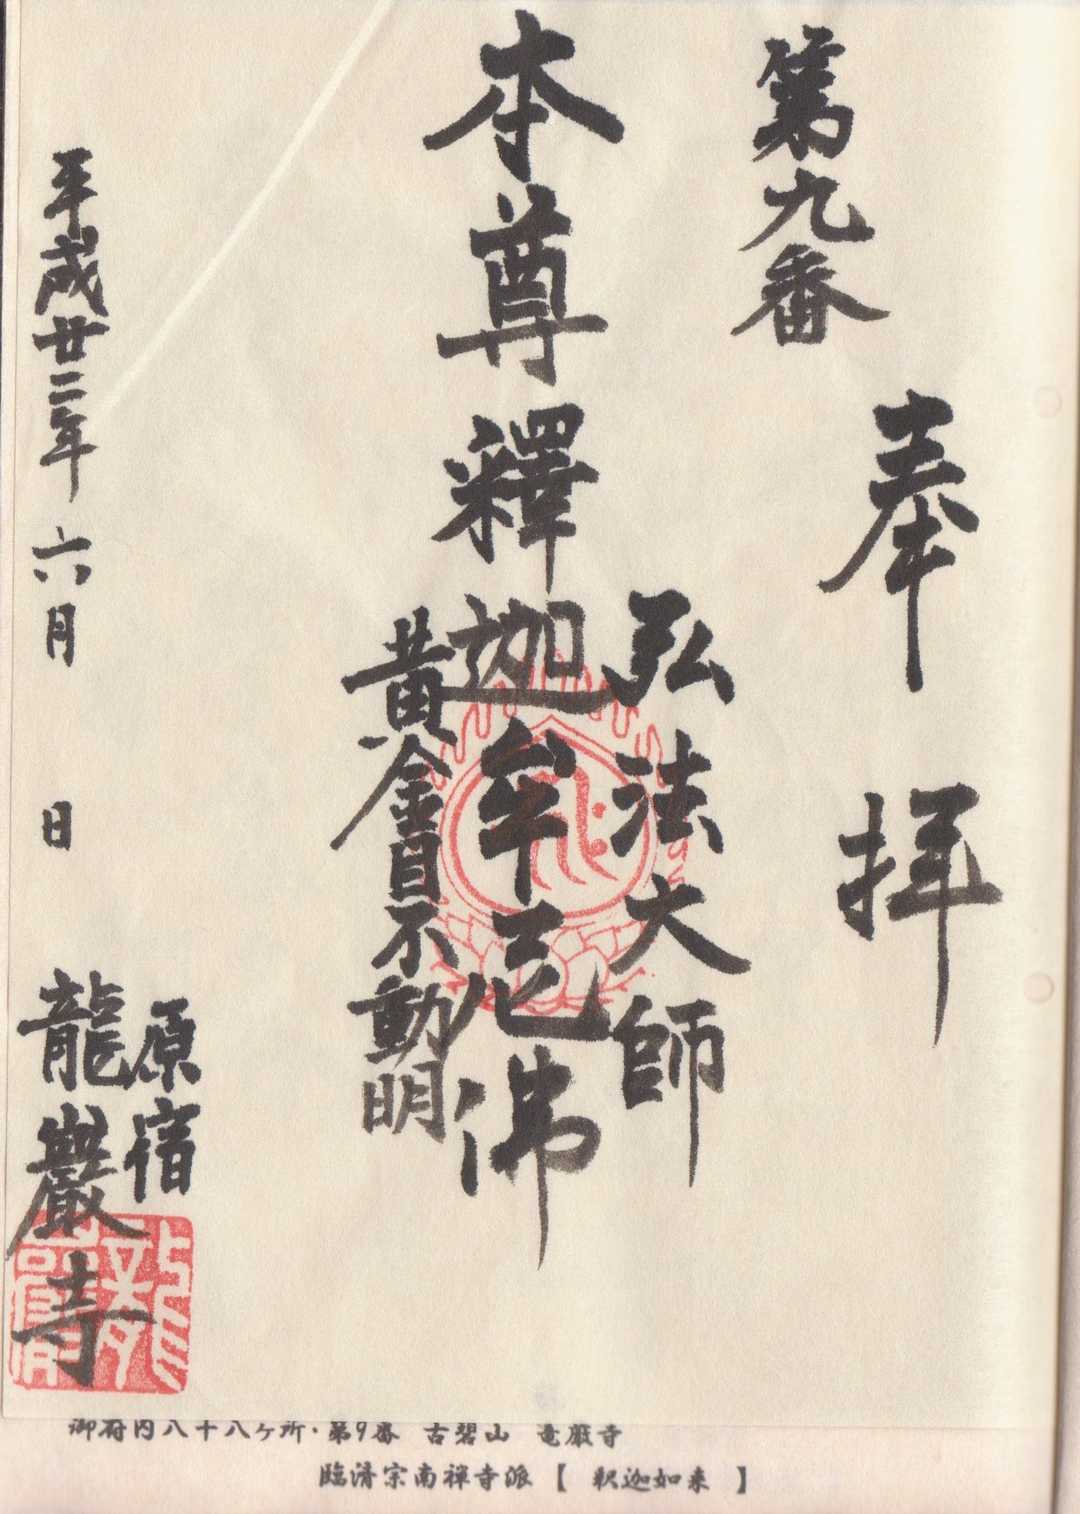 奉拝
第九番
弘法大師
本尊釋迦牟尼佛
黄金目不動明
平成廿二年六月 日
原宿
龍巖寺
御府内八十八ヶ所・第9番 古碧山 竜巌寺
臨済宗南禅寺派【 釈迦如来 】